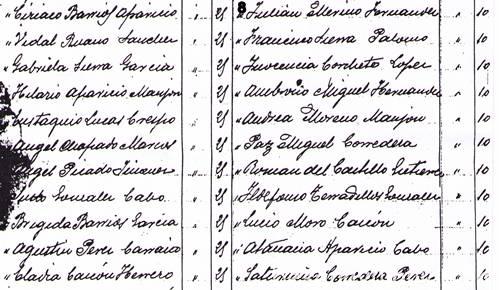 "Ciriaco Barrios Aparicio " 25 " Julian Merino Fernandez " 10
" Vidal Ruano Sanchez " 25 " Francisco Sierra Palomo " 10
" Gabriela Sierra Garcia " 25 " Inocencia Cordero Lopez " 10
" Hilario Aparicio Manjon " 25 " Ambrosio Miguel Hernandez " 10
Eustaquio Lucas Crespo " 25 " Andrea Moreno Manjon " 10
Angel Marcos " 25 " Paz Miguel Corredera " 10
Angel Picado Jimenez " 25 " Roman del Castillo Gutierrez " 10
Gonzalez Cabo " 25 " Ildefonso Terradillos Gonzalez " 10
" Brigida Barrios Garcia " 25 " Lucio Moro Cascón " 10
" Agustin Perez " 25 " Atanacia Aparicio Cabo " 10
" Eladia Cascón Herrero " 25 " Saturnino Corredera Perez " 10